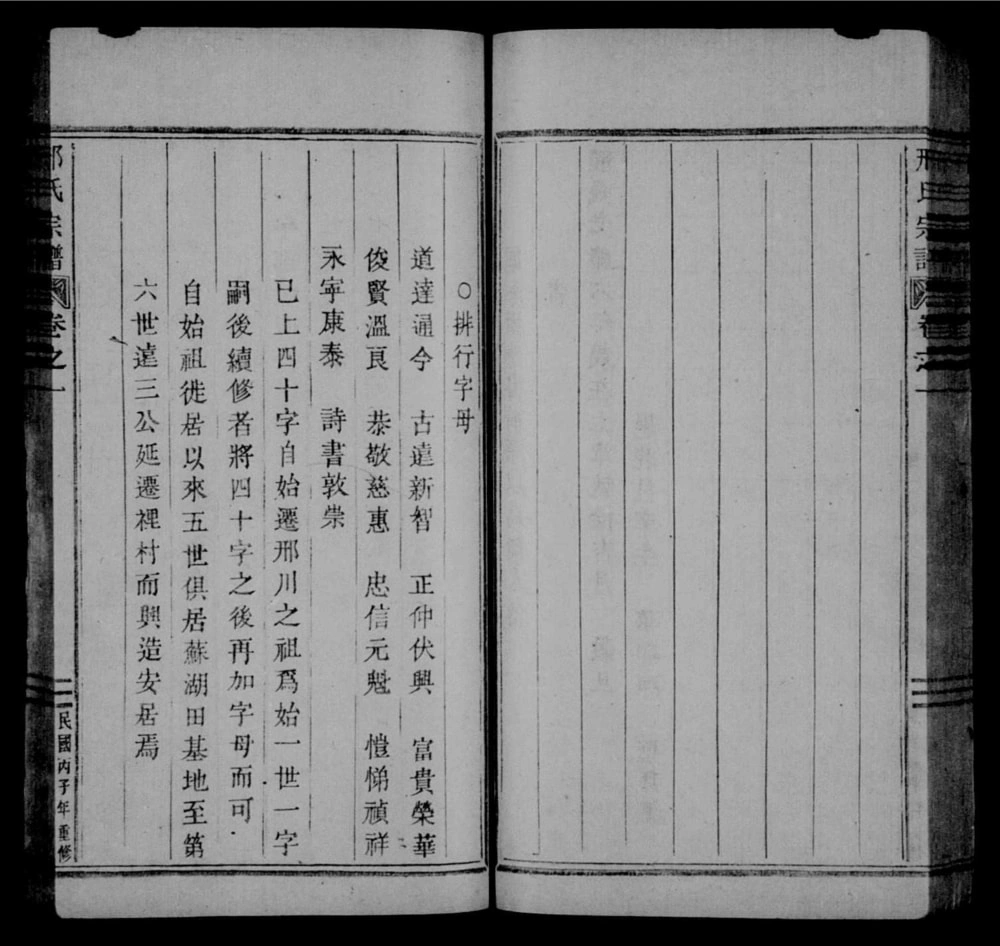 邢氏宗譜 卷之一
○排行字母
道達通今 古遠新智 正仲伏興 富貴榮華
俊賢溫良 恭敬慈惠 忠信元魁 愷悌禎祥
永寧康泰 詩書敦崇
已上四十字自始遷邢川之祖爲始一世一字
嗣後續修者將四十字之後再加字母而可
自始祖徙居以來五世俱居蘇湖田基地至第
六世逵三公延遷裡村而興造安居焉
邢氏宗譜 卷之一 民國丙子年重修